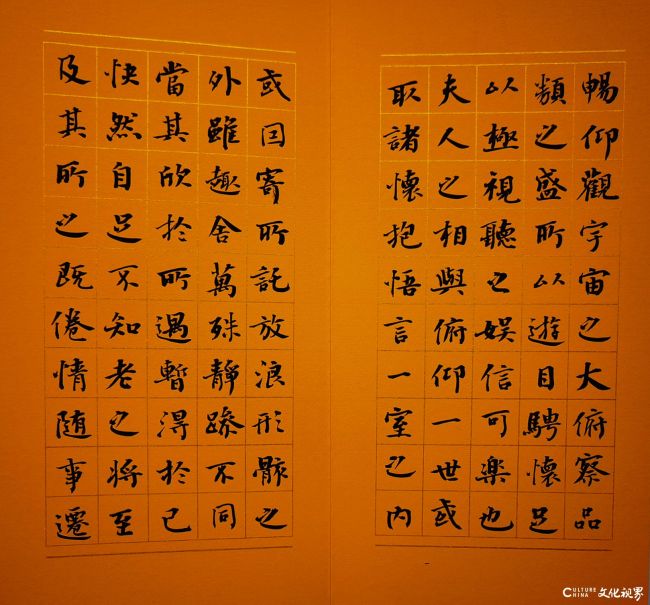 暢仰觀宇宙之大俯察品
類之盛所以遊目騁懷足
以極視聽之娛信可樂也
夫人之相與俯仰一世或
取諸懷抱悟言一室之内
或因寄所託放浪形骸之
外雖趣舍萬殊靜躁不同
當其欣於所遇暫得於己
快然自足不知老之將至
及其所之既倦情随事遷
CULTURE CHINA 文化视界